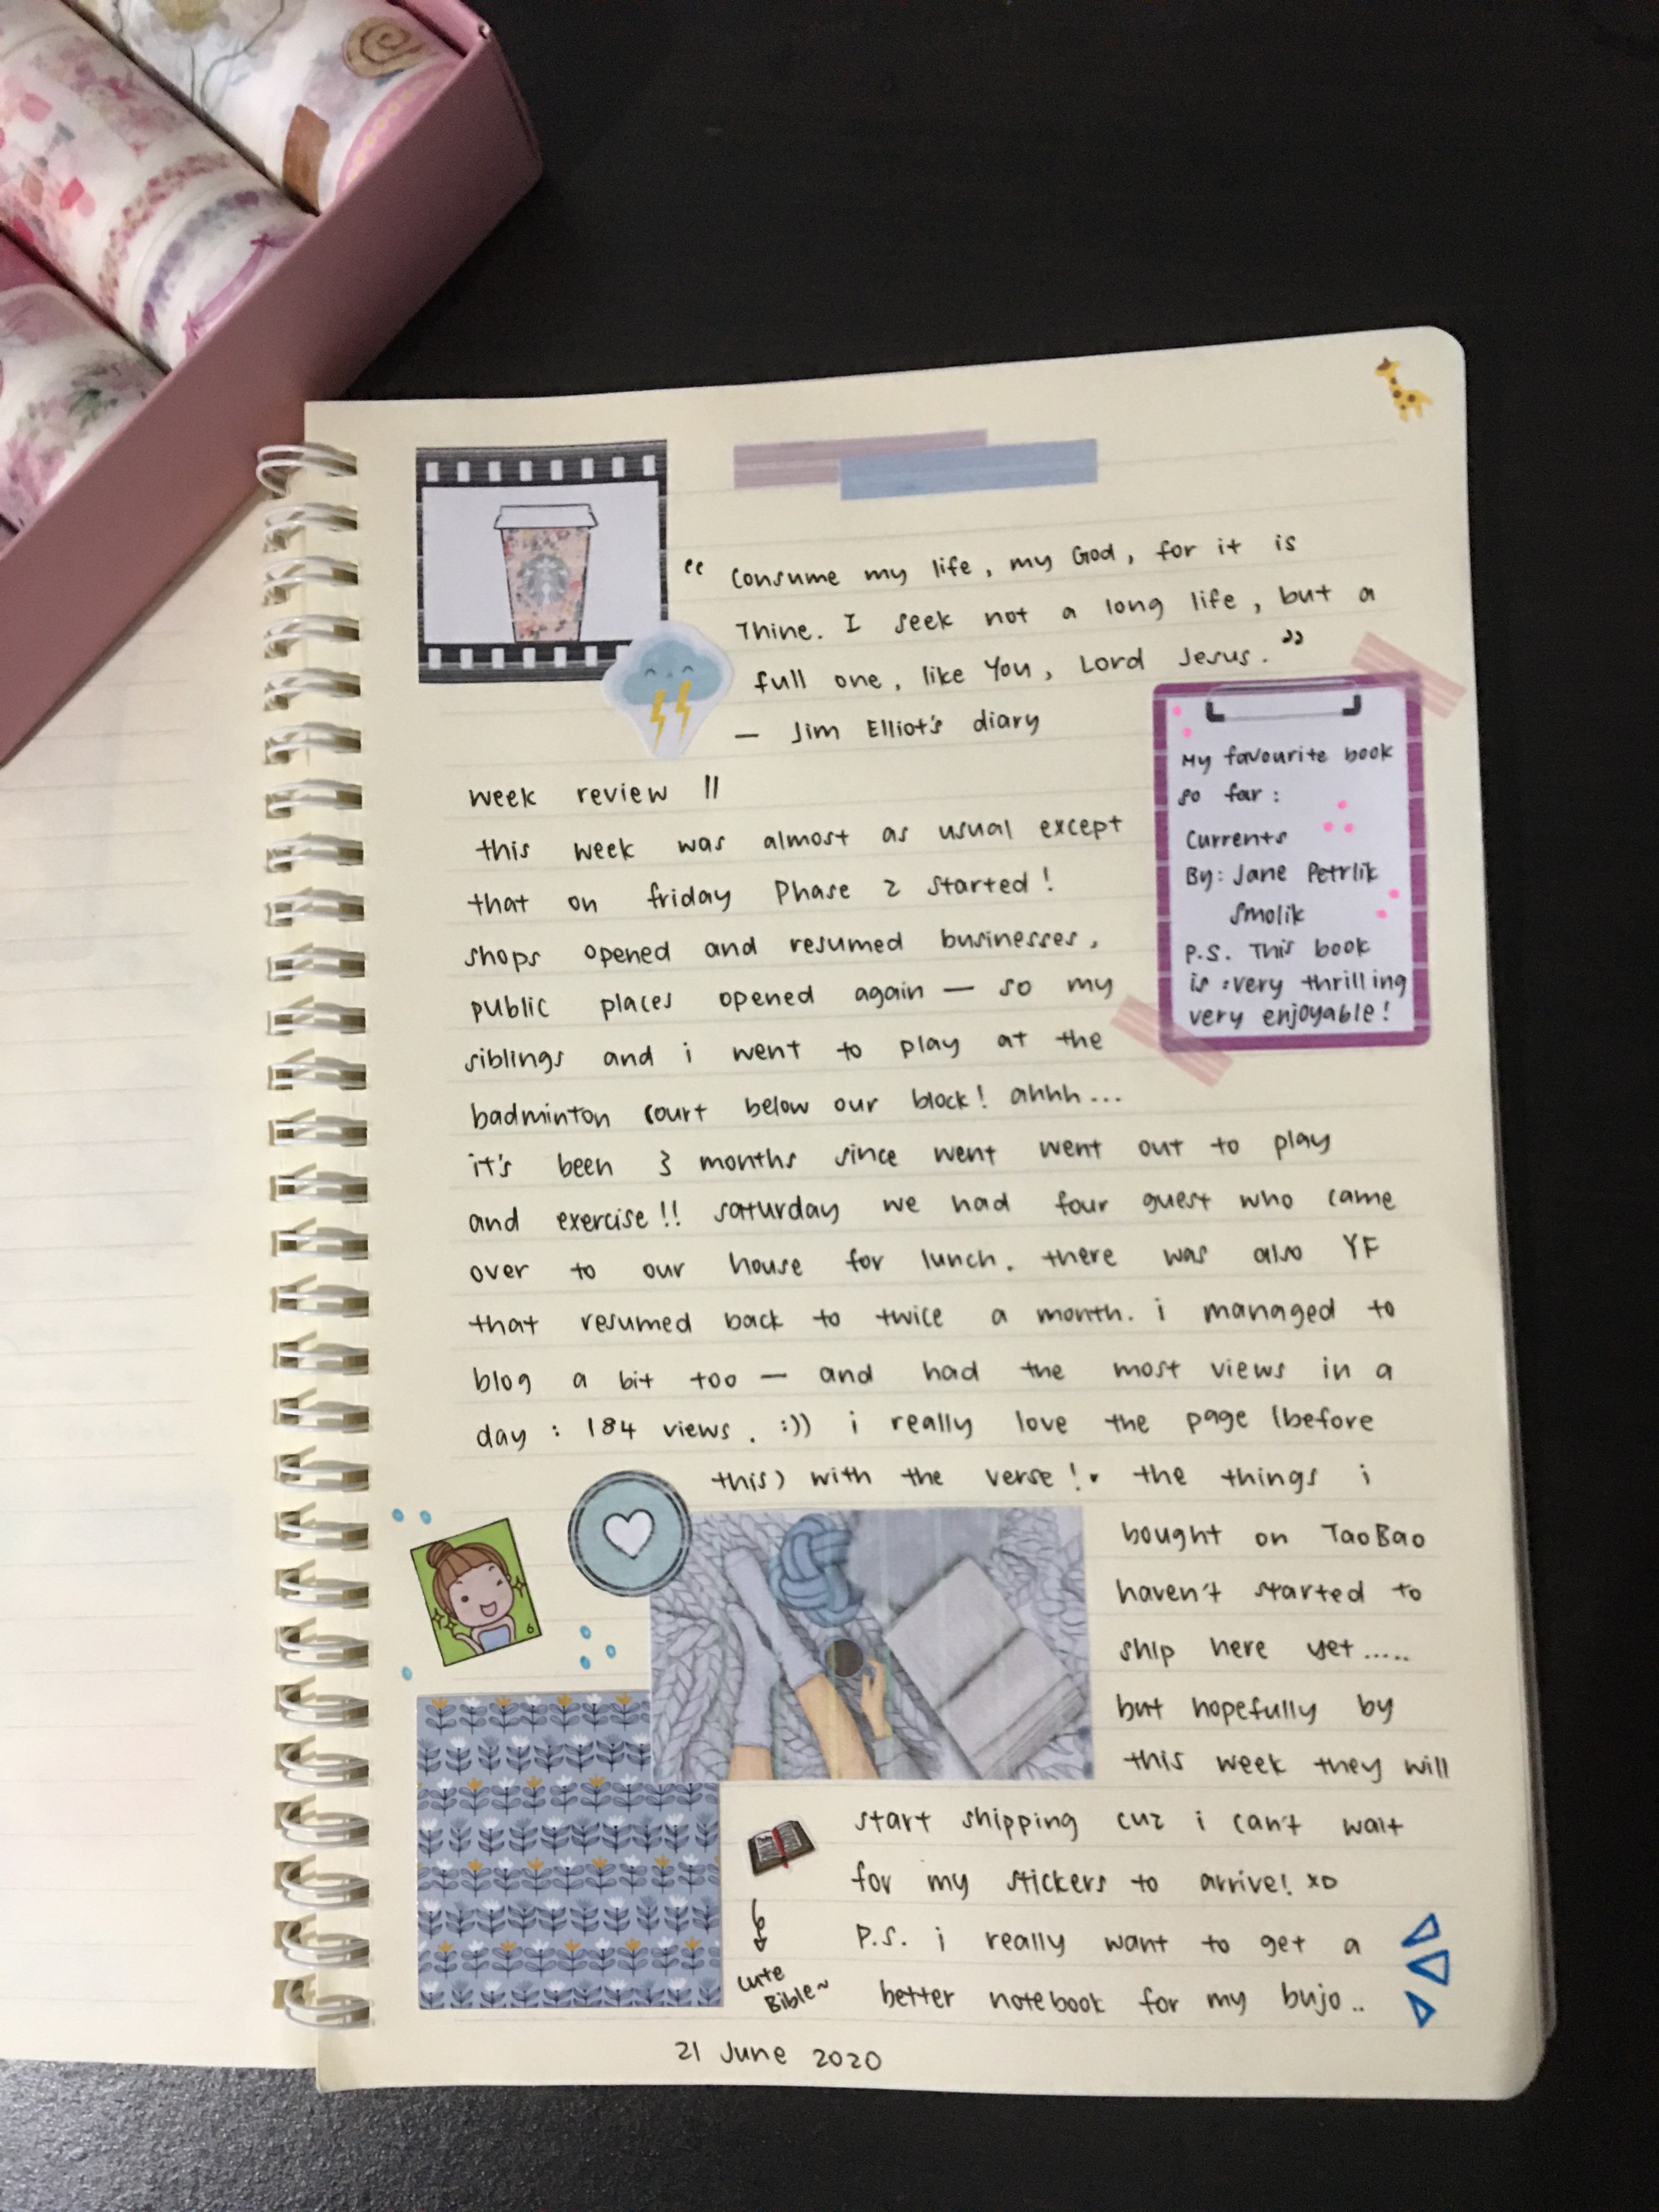 “ Consume my life, my God, for it is
Thine. I seek not a long life, but a
full one, like You, Lord Jesus. ”
— Jim Elliot's diary
My favourite book
so far :
Currents
By: Jane Petrlik
Smolik
P.S. This book
is :very thrilling
very enjoyable!
week review ||
this week was almost as usual except
that on friday Phase 2 started!
shops opened and resumed businesses,
public places opened again — so my
siblings and i went to play at the
badminton court below our block! ahhh...
it's been 3 months since went went out to play
and exercise!! saturday we had four guest who came
over to our house for lunch. there was also YF
that resumed back to twice a month. i managed to
blog a bit too — and had the most views in a
day : 184 views . :)) i really love the page (before
this) with the verse! ♥ the things i
bought on TaoBao
haven't started to
ship here yet.....
but hopefully by
this week they will
start shipping cuz i can't wait
for my stickers to arrive! xD
P.S. i really want to get a
better notebook for my bujo..
6
cute
Bible~
21 June 2020